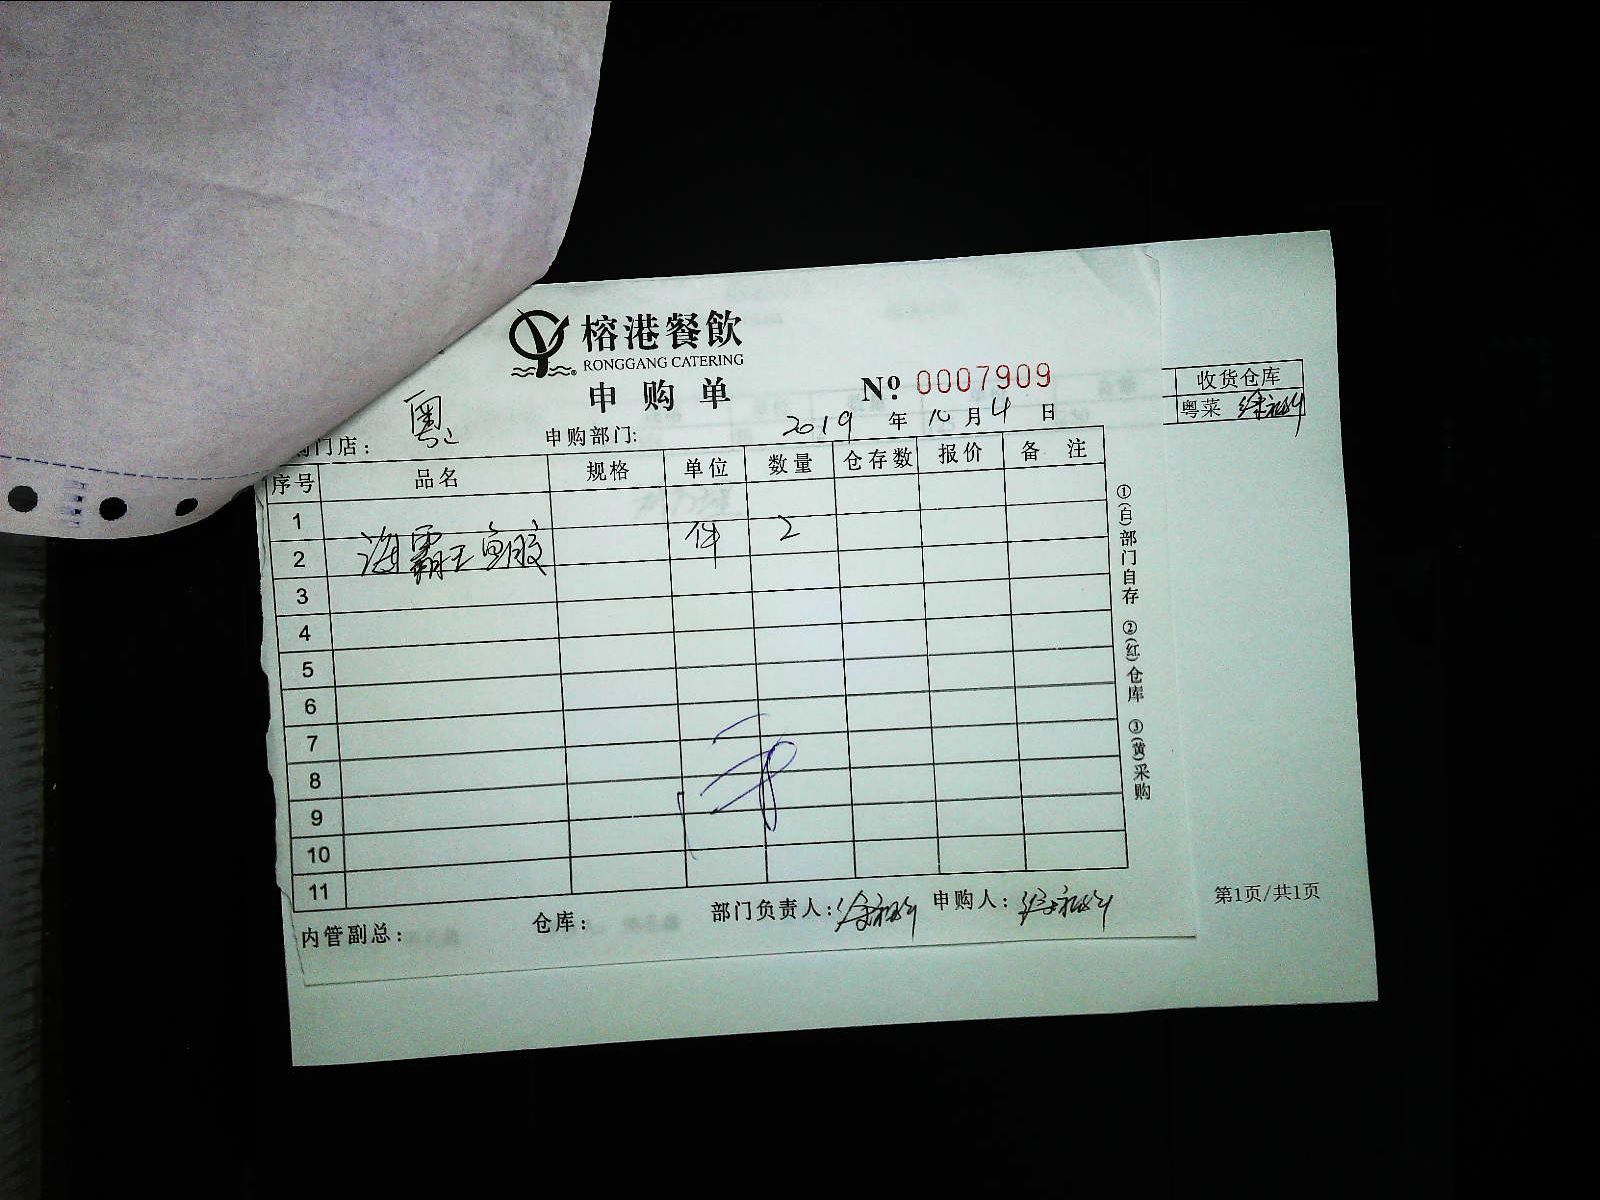 榕港餐飲
RONGGANG CATERING
申购单
№ 0007909
门店： 粤
申购部门： 2019 年 10 月 4 日
序号 品名 规格 单位 数量 仓存数 报价 备 注
1
2 海霸王鱼胶 件 2
3
4
5
6
7
8
9
10
11
内管副总： 仓库： 部门负责人： 申购人：
①(白)部门自存 ②(红)仓库 ③(黄)采购
收货仓库
粤菜
第1页/共1页